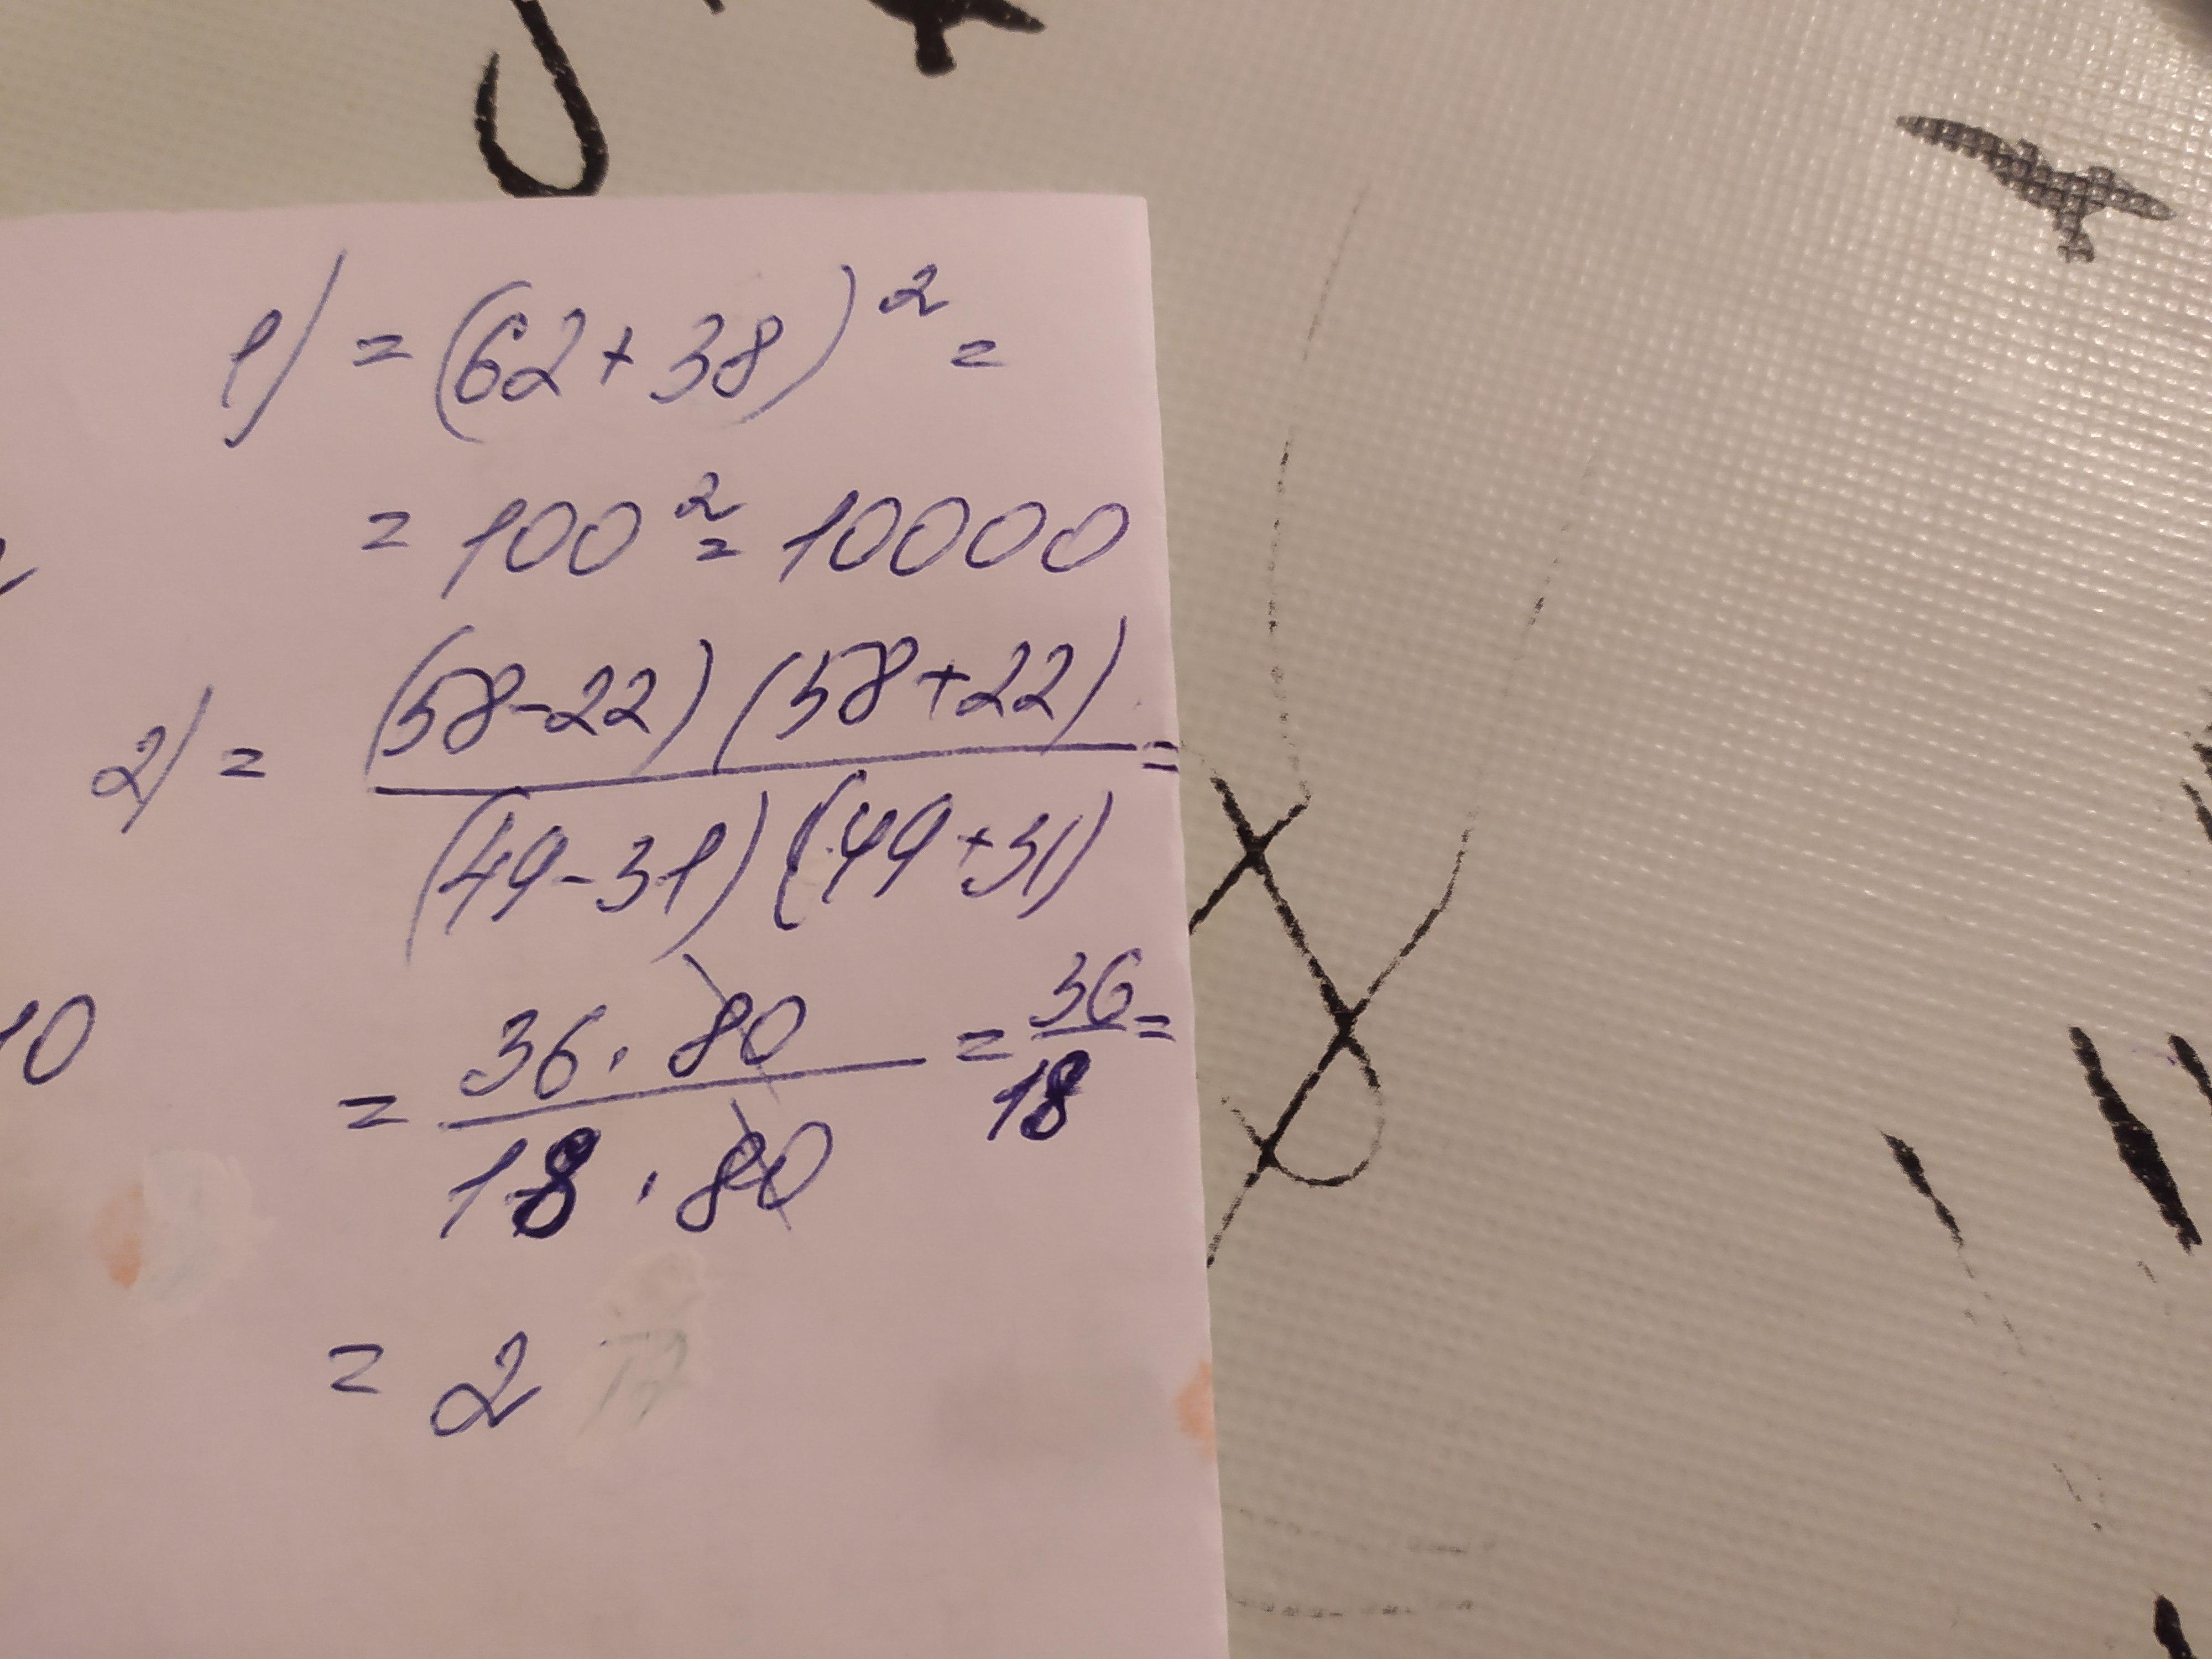 1) = (62+38)² =
= 100² = 10000
2) = (58-22)(58+22) =
(49-31)(49+31)
= 36 · 80 = 36 =
18 · 80 18
10
= 2